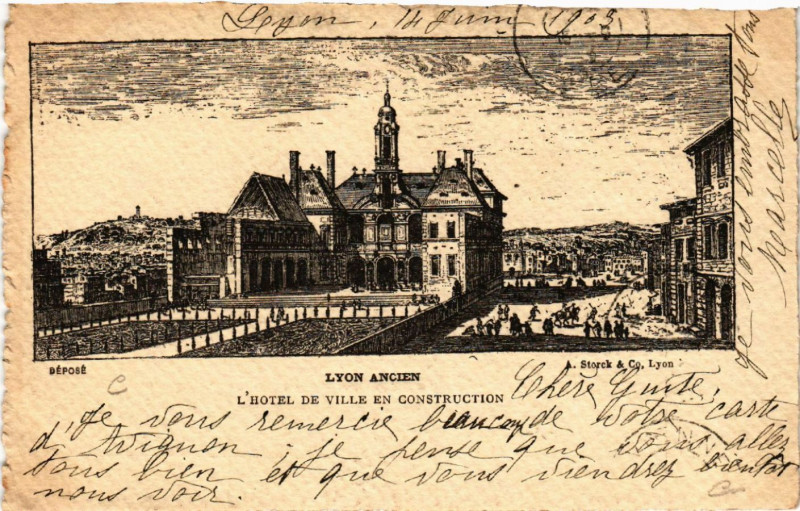 Lyon, 14 Juin 1903
DÉPOSÉ
A. Storck & Co, Lyon
LYON ANCIEN
L'HOTEL DE VILLE EN CONSTRUCTION
Chère Guite,
Je vous remercie beaucoup de votre carte
d'Avignon, je pense que vous allez
tous bien et que vous viendrez bientot
nous voir.
Je vous embrasse tous
Marcelle